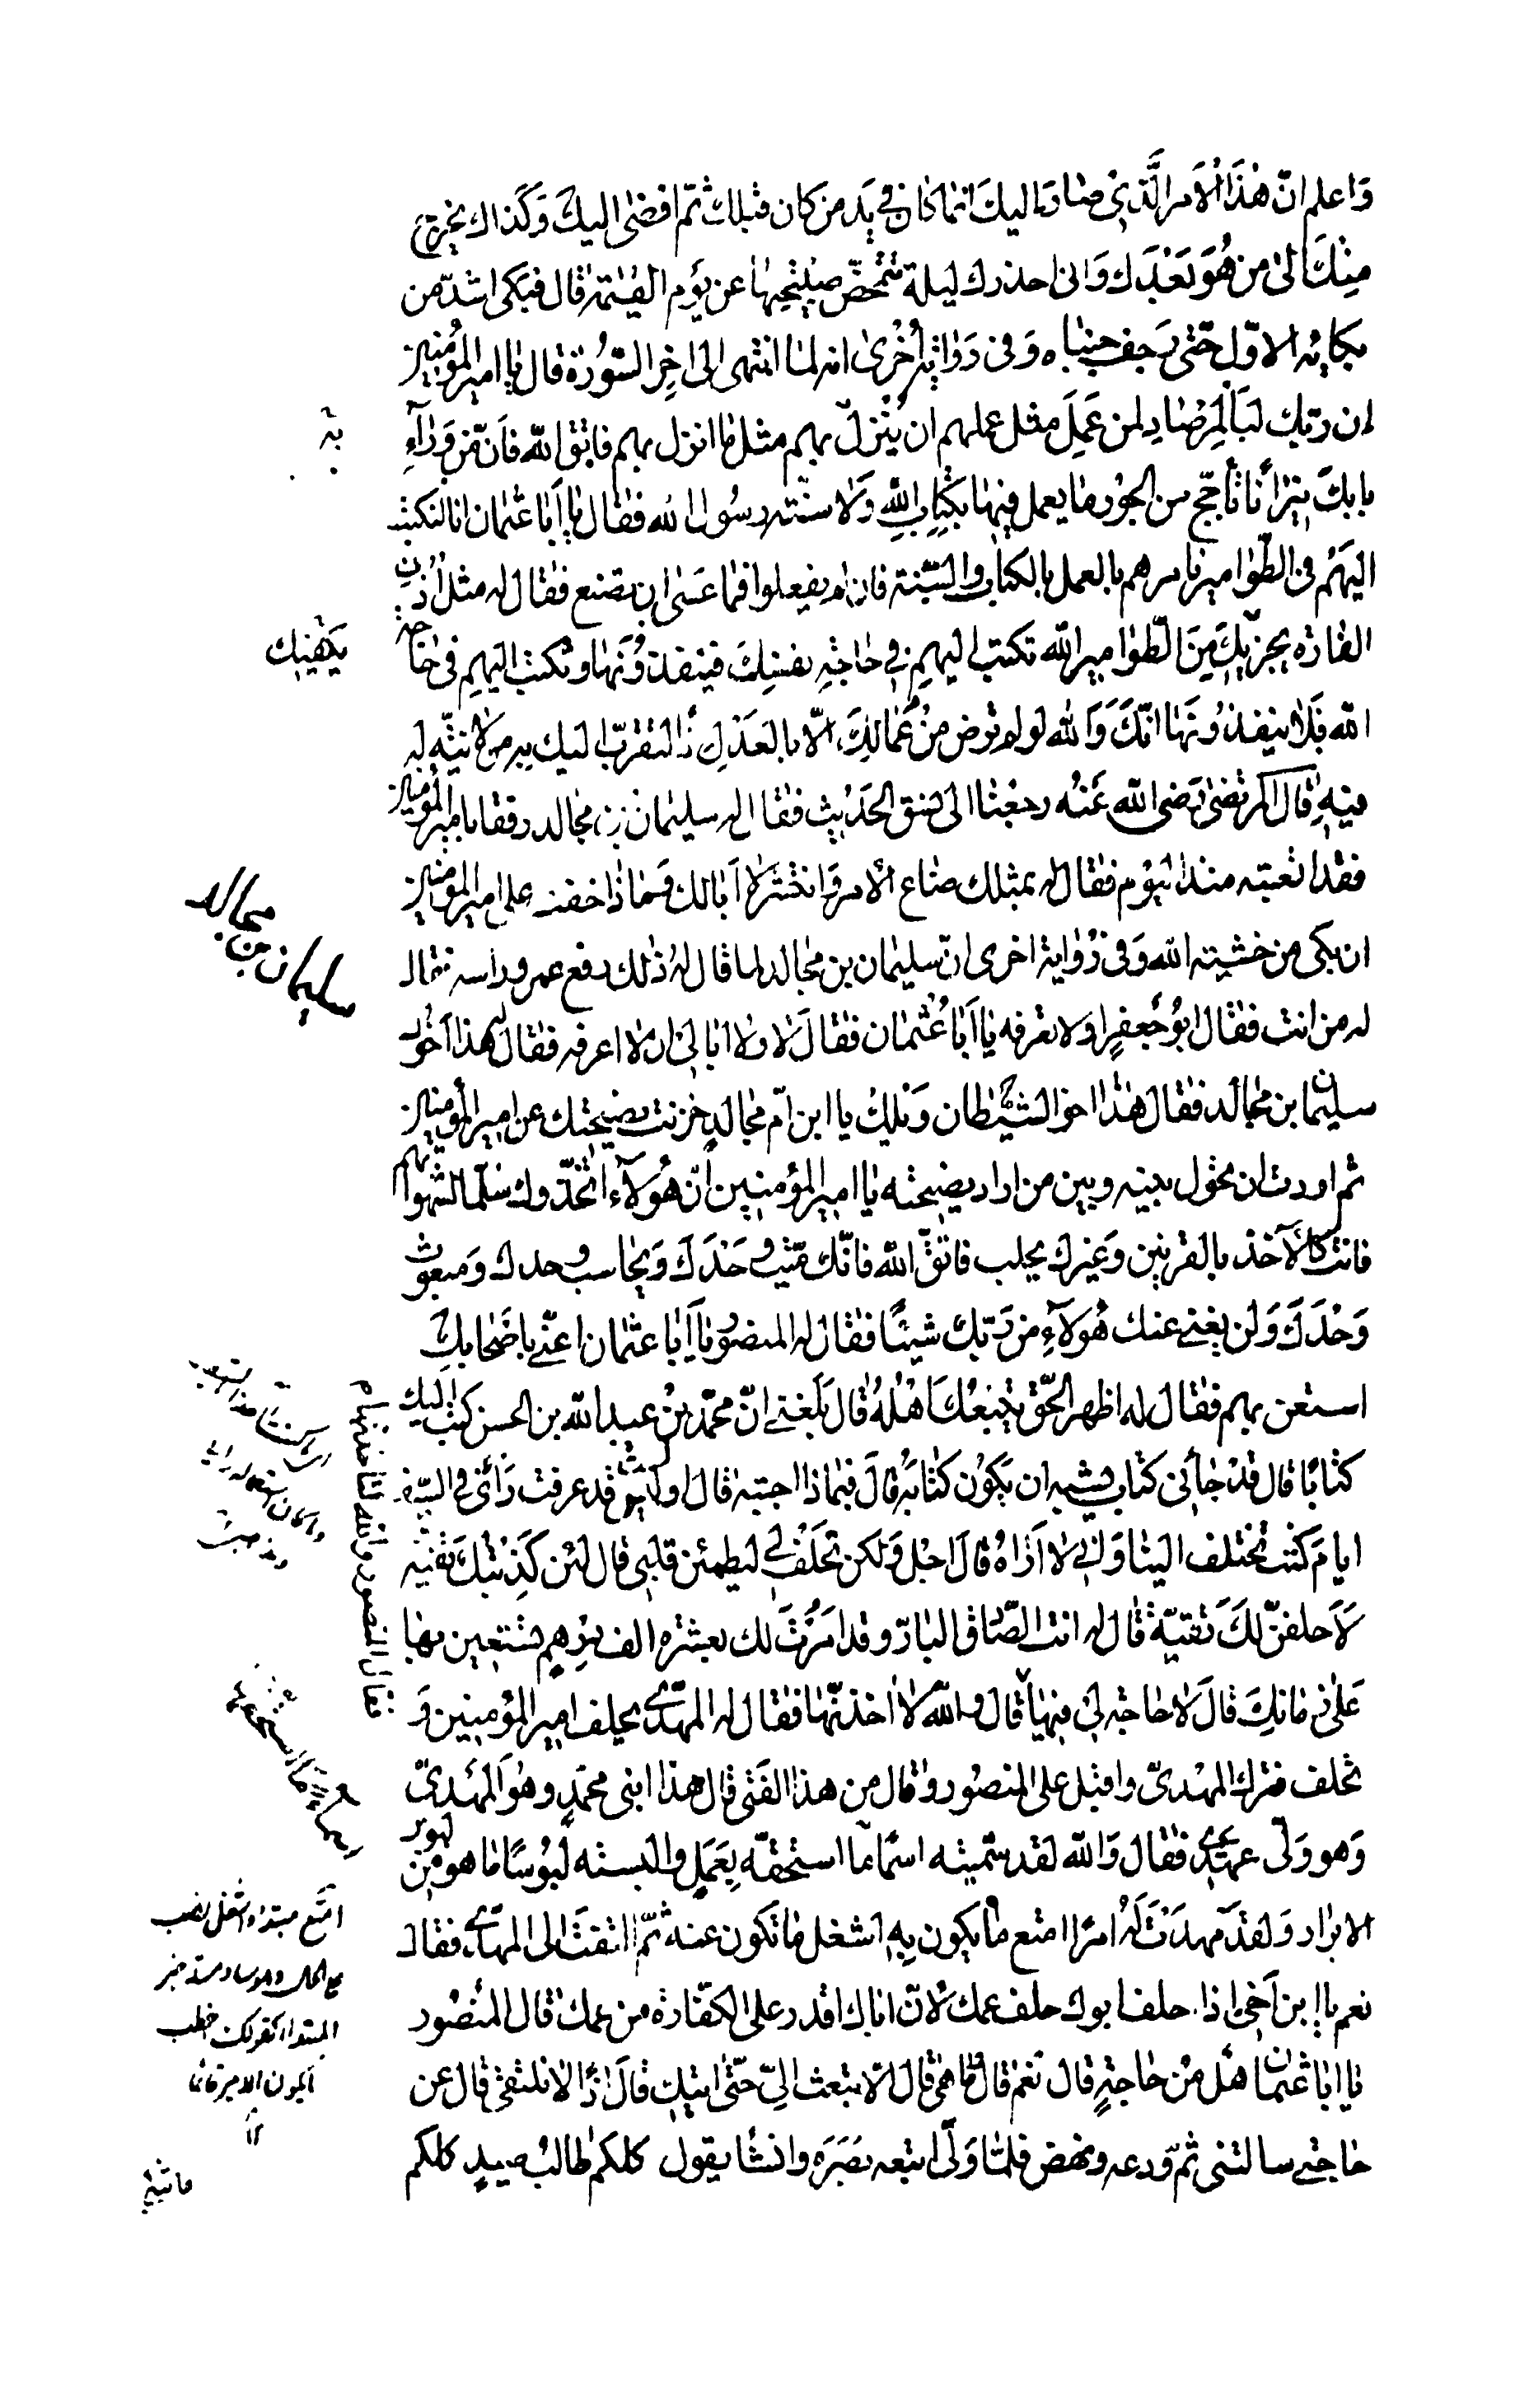 وَاعلم انّ هٰذَا الْاَمر الَّذى صٰار اليكَ انما كانَ فى يَد من كان قبلك ثمّ افضٰى اليكَ وَكَذلك يخرج
مِنْكَ الىٰ من هُوَ بَعْدَك وَانى احذرك ليلة تتمخّض صبيحتهٰا عن يَوم القيٰمة قال فبكى اشدّ من
بكائه الاوّل حتّى رجف جنباه وَفى رَوٰاية اُخْرىٰ انه لما انتهى الىٰ اٰخِرِ السّورة قال يٰا امير المؤمنين
ان رَبّك لَبِالْمِرْصٰادِ لمن عَمِلَ مثل عملهم ان يُنْزِل بهم مثل مٰا انزل بهم فاتق اللّه فاَنّ من وَرٰآءِ
بابكَ نيرٰاناً تأجّج من الجَوْر مٰا يعمل فيهٰا بكِتٰابِ اللّهِ وَلٰا سنّته رسُول الله فقٰال يٰا اَبٰا عثمان انا لنكتب
اليهَم فى الطّوٰامير نٰامرهم بالعمل بالكتاب والسّنة فان لم يفعلوا فمٰا عَسىٰ ان نصنع فقٰال له مثل اُذن
الفارة يجزيكَ مِنَ الطّوٰامير اللّه تكتب اليهم فى حٰاجةِ نفسِكَ فينفذونَهٰا وتكتب اليهم فى حٰاجة
اللّه فَلٰا ينفذونَهٰا انّكَ وَاللّه لو لم ترض مِنْ عُمّالِكَ الّا بالعَدْلِ اذاً لتقرّب اليك به من لٰا نيّة له
فيهِ قال المرتضىٰ رَضى اللّه عَنْه رجعْنا الى نسق الحَدْيث فقٰال له سليمٰان بن مجٰالد رفقا بامير المؤمنين
فقد اتعبته منذ اليَوْم فقٰال له بمثلك ضٰاع الامر وَانتشر لٰا اَبٰا لك وَمٰاذا خفت على امير المؤمنين
ان بكى من خشيته اللّه وَفى رَوٰاية اخرى انّ سليمٰان بن مجٰالد لما قٰال لهُ ذٰلك رفع عمرو راسه فقال
له من انت فقٰال ابُو جَعفرٍ اولا تعرفه يٰا اَبٰا عُثْمٰان فقٰالَ لٰا ولا ابٰالى ان لٰا اعرفه فقٰال هذا اَخُوك
سليمٰان بن مجٰالد فقٰال هٰذٰا اخو الشّيْطٰان وَيْلكَ يا ابن امّ مجٰالدٍ خزنت نصيحتك عن امير المؤمنين
ثم اردت ان تحول بينه وبين من اراد نصيحته يٰا امير المؤمنين انّ هٰؤلآء اتّخذوك سُلّما لشهواتهم
فانت كالآخذ بالقرنين وَغيرك يحلب فاتّقِ اللّه فانّك ميّت وَحْدَكَ وَمحٰاسب وحدك وَمبعوث
وَحْدَكَ وَلن يغنى عنك هٰؤلآءِ من رَبّك شيئًا فقٰال له المنصور يٰا اَبٰا عثمان اعنّى باصْحٰابك
استعن بهم فقٰال له اظهر الحقّ يَتبَعْكَ اَهْلُهُ قٰال بَلَغنى انّ محمّدَ بْن عبد اللّه بن الحسن كتب اليك
كتٰابًا قال قدْ جٰاءَنى كتاب يشبه ان يَكوُن كتٰابَهُ قٰالَ فبمٰاذا اجبته قٰال اوليس قد عرفت رَأيى فى السّيف
ايامَ كنت تختلف الينٰا وَانى لٰا اَرٰاهُ قٰالَ اجل وَلكن تحلف لى ليطمئن قلبى قٰال لئن كَذبْتكَ تقيّة
لَاَحلفنّ لَكَ تقيّة قٰال له انت الصّادق البارّ وقد امَرْتُ لك بعشرة الف درهم تستعين بهٰا
عَلىٰ زمٰانِكَ قٰالَ لٰا حٰاجة لى فيهٰا قٰال واللّه لٰا اخذتّهٰا فقٰال له المهدى يحلف امير المؤمنين وَ
تحلف فترك المهْدىّ واقبل على المنصُور وقٰال من هذا الفَتى قٰال هذا ابنى محمّد وهُو المهْدىّ
وَهو وَلىّ عهدى فقٰال وَاللّه لقد سمّيته اسمًا مٰا استحقّه بِعَملٍ والبسته لبُوسًا مٰا هو من لبوس
الابرٰار وَلقدْ مَهدتَ لَهُ امرًا امتع مٰا يكون بِهِ اشغل مٰا تكون عنه ثمّ التفتَ الى المهدى فقال
نعم يا ابن اَخى اذا حلف ابوك حلف عمك لانّ اباك اقدر على الكفّارة من عمك قٰال المنصُور
يٰا ابٰا عثمٰان هَلْ مِنْ حٰاجةٍ قال نَعَم قٰال مٰا هى قٰال لٰا تبعث الىّ حتّى اتيك قٰالَ اذًا لٰا نلتقى قٰال عن
حٰاجتى سالتنى ثمّ ودعه ونهض فلمّا وَلّى اتبعه بصَرَه وانشأ يقول كلكم طالب صيدٍ كلكم
يه
يكفيك
سليمان بن مجالد
فقال المنصور والله لتاخذنهٰا
امتع مبتدا واشغل نصب
على الحال وهو ساد مسد خبر
المبتدا كقولك اخطب
ما يكون الامير قائما
ماشى